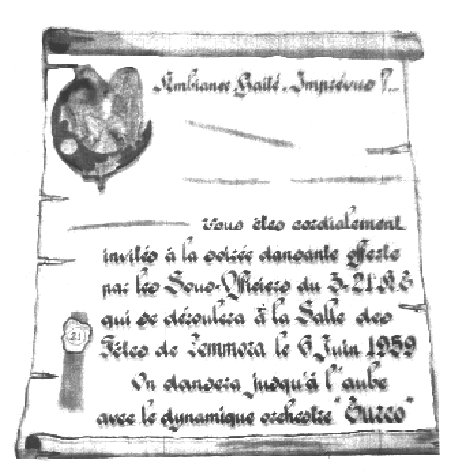 Ambiance Gaîté. Imprévus ?...
Vous êtes cordialement
invités à la soirée dansante offerte
par les Sous-Officiers du 3-21 R I
qui se déroulera à la Salle des
Fêtes de Zemmora le 6 Juin 1959
On dansera jusqu'à l'aube
avec le dynamique orchestre
21